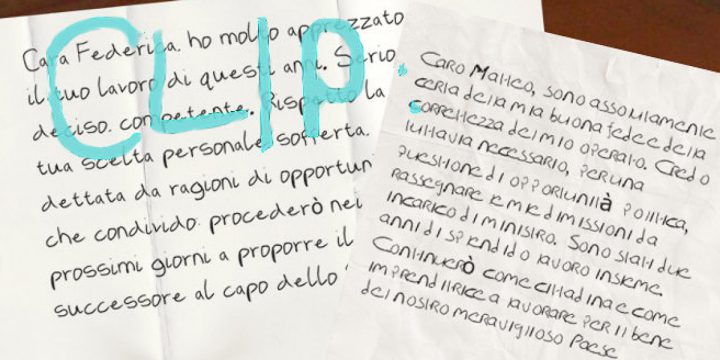 Cara Federica, ho molto apprezzato
il tuo lavoro di questi anni. Serio,
deciso, competente. Rispetto la
tua scelta personale, sofferta,
dettata da ragioni di opportun
che condivido, procederò nei
prossimi giorni a proporre il
successore al capo dello
CLIP
Caro Matteo, sono assolutamente
certa della mia buona fede e della
correttezza del mio operato. Credo
tuttavia necessario, per una
questione di opportunità politica,
rassegnare le mie dimissioni da
incarico di ministro. Sono stati due
anni di splendido lavoro insieme.
Continuerò come cittadina e come
imprenditrice a lavorare per il bene
del nostro meraviglioso Paese